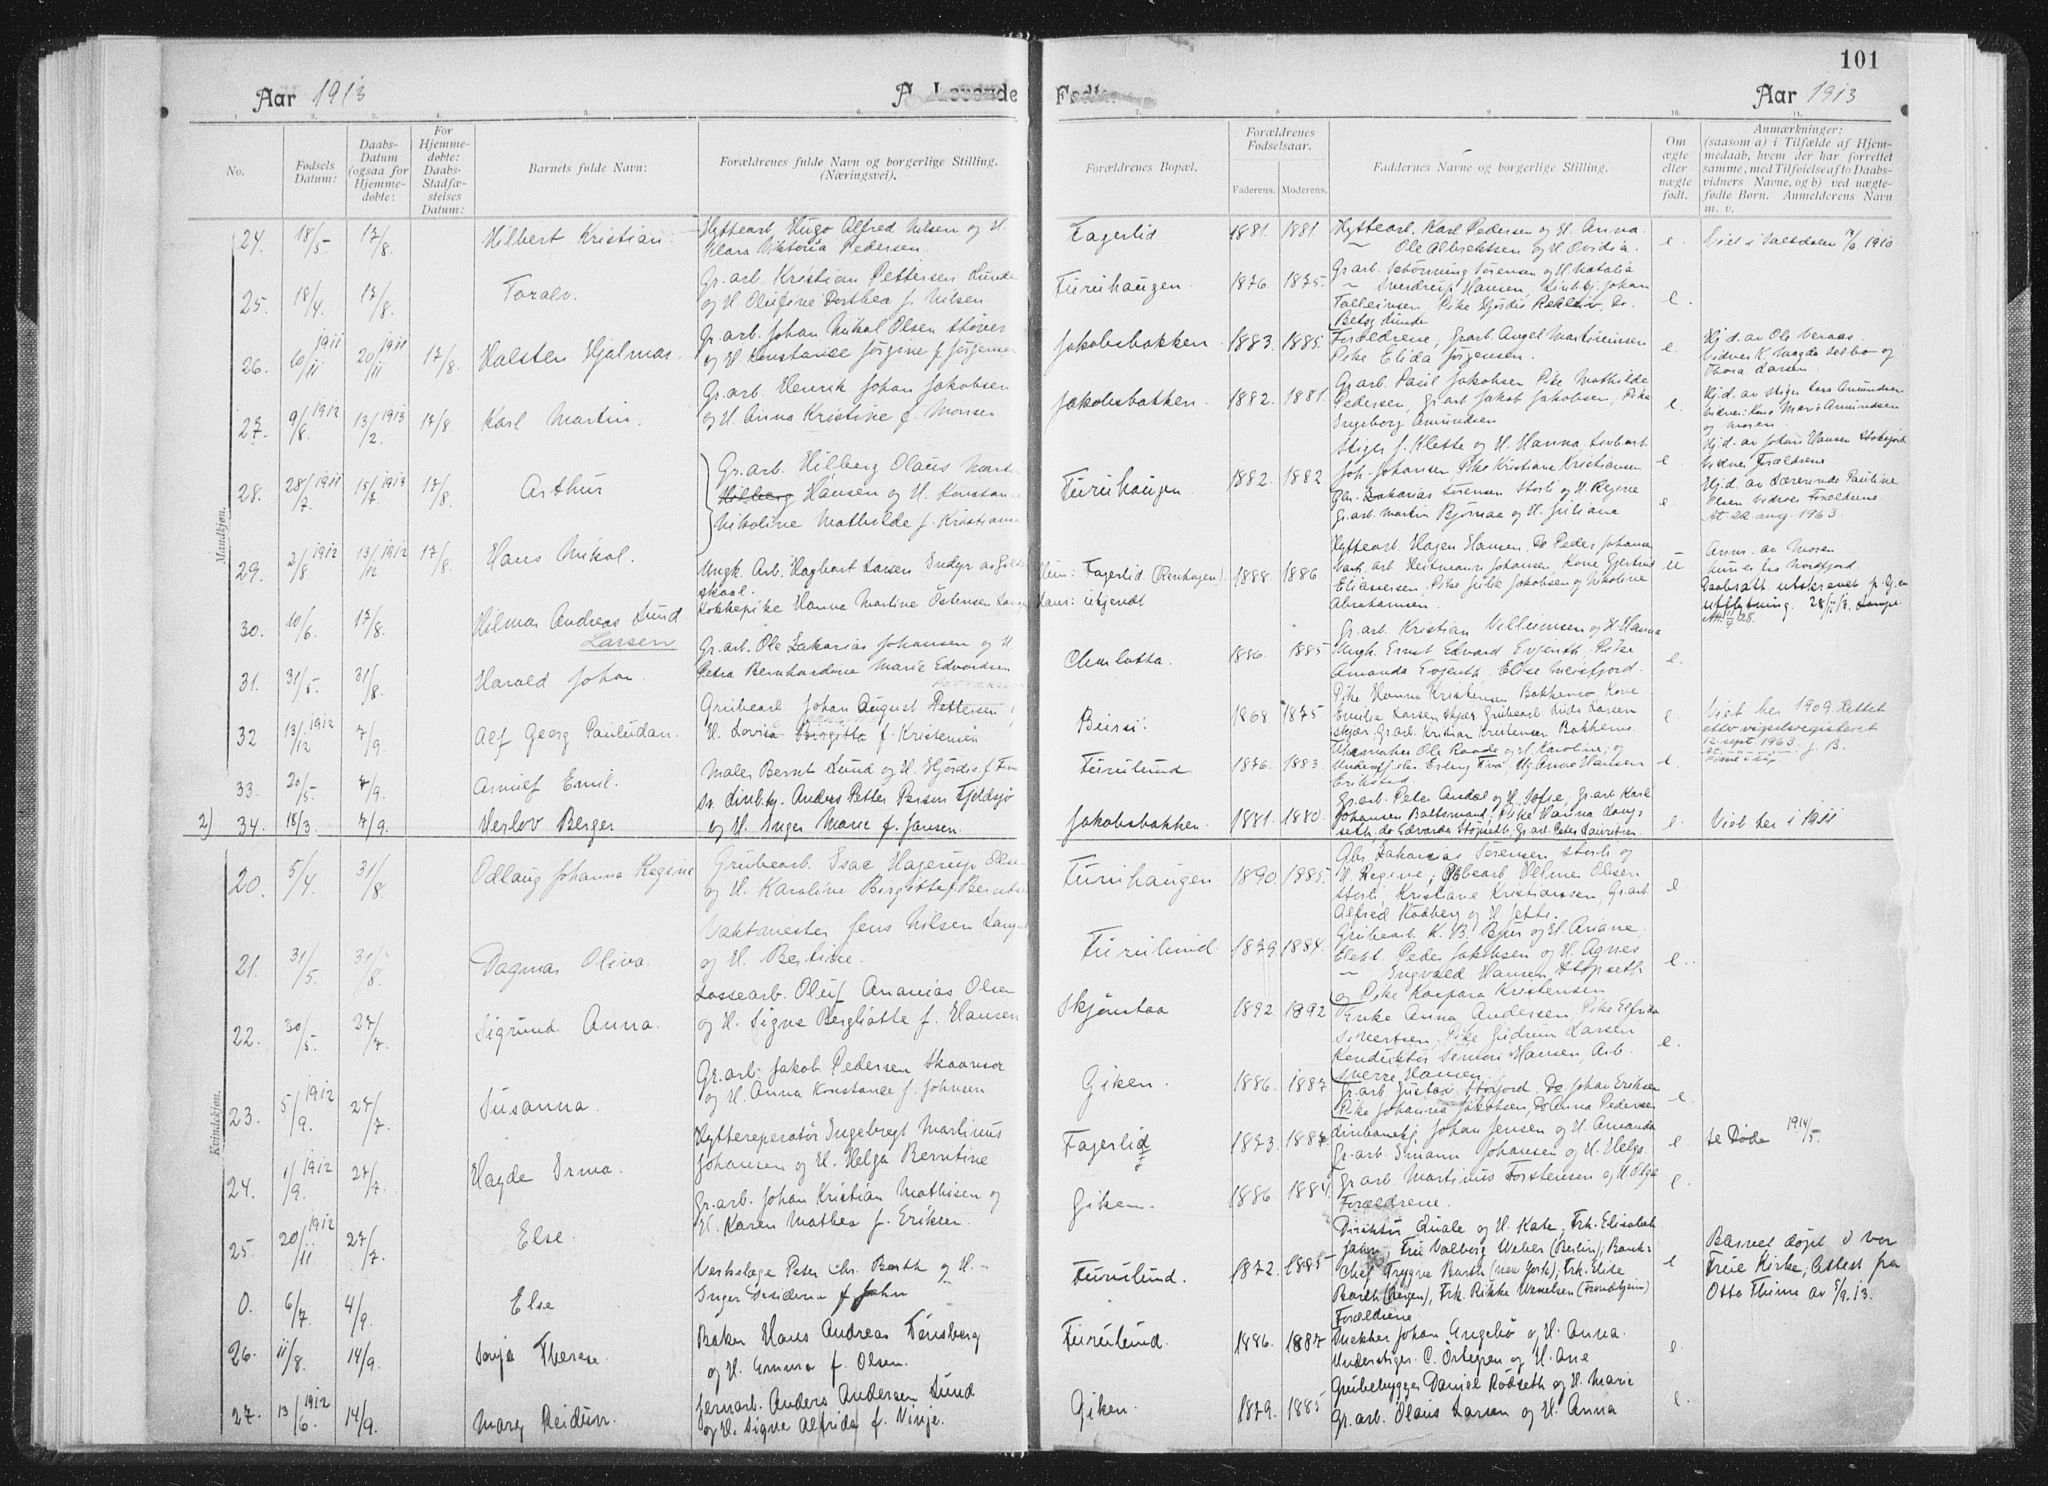 101
Aar 1913
A. Levende
Fødte.
Aar 1913
1. 2. 3. 4. 5. 6. 7. 8. 9. 10. 11.
No.
Fødsels Datum:
Daabs-Datum (ogsaa for Hjemme-døbte:
For Hjemme-døbte: Daabs-Stadfæ-stelses Datum:
Barnets fulde Navn:
Forældrenes fulde Navn og borgerlige Stilling. (Næringsvei).
Forældrenes Bopæl.
Forældrenes Fødselsaar.
Faderens. Moderens.
Faddernes Navne og borgerlige Stilling.
Om ægte eller uægte født.
Anmærkninger:
(saasom a) i Tilfælde af Hjem-
medaab, hvem der har forrettet
samme, med Tilføielse af to Daabs-
vidners Navne, og b) ved uægte-
fødte Børn. Anmelderens Navn
m. v.
Mandkjøn.
24. 18/5. 17/8. Hilbert Kristian.
Hyttearb. Hugo Alfred Nilsen og H.
Klara Viktoria Pedersen.
Fagerlid 1881. 1881
Hyttearb. Karl Pedersen og H. Anna.
~ Ole Albrektsen og H. Ovidia.
e. Viet i Saltdalen 7/6 1910
25. 18/4. 17/8. Toralv.
Gr. arb. Kristian Pettersen Lunde
og H. Olufine Dorthea f. Nilsen
Furuhaugen. 1876 1875.
Gr arb. Sørensen og H. Natalia
~ Sverdrup Hansen, Johan
Tolleivsen, Pike Hjørdis
Betsy Lunde
e.
26. 10/11 1911 20/11 1911 17/8. Halsten Hjalmar.
Gr. arb. Johan Nikal Olsen Støver
og H. Konstanse Jørgine f. Jørgensen
Jakobsbakken. 1883. 1885.
Forældrene, Grarb. Angel Martinussen
Pike Elida Jørgensen.
e.
Hj. d. av Ole Veraas.
Vidner K. Magda Setbo og
Thora Larsen.
27. 9/8. 1912 13/2. 1913 17/8. Karl Martin.
Gr. arb. Henrik Johan Jakobsen
og H. Anna Kristine f. Monsen
Jakobsbakken. 1882. 1881.
Gr. arb. Paul Jakobsen, Pike Mathilde
Pedersen, Gr. arb Jakob Jakobsen, Pike
Ingeborg Amundsen
e.
Hj. d. av stiger Lars Amundsen
Vidner: Kone Marie Amundsen
og Moren.
28. 28/7. 1911 15/7 1913 17/8. Arthur
Gr. arb. Hilberg Olaus
Hilberg Hansen og H. Konstanse
Nikoline Mathilde f. Kristiansen
Furuhaugen. 1882. 1882
Stiger J. Klette og H. Hanna
Joh. Johansen, Pike Kristiane Kristiansen
e
Hj. d. av Johan Hansen Storfjord
Vidner Forældrene
29. 2/8 1912 13/12 1912 17/8. Hans Nikal.
Gbr. Zakarias Sørensen Storli og H. Regine
Gr. arb. Martin Bjørnaa og H. Juliana
e
Hj. d. av Lærerinde Pauline
Olsen Vidner Forældrene.
At 22 aug. 1963.
30. 10/6. 17/8. Hilmar Andreas Lund
Larsen
Ungk. Arb. Hagbart Larsen
skaal.
Kokkepike Hanna Martine Østensen
Fagerlid. (Renhagen). 1888. 1886
Hans: ukjendt
Hyttearb. Hagen Hansen, Do Peder Johansen
arb. Heitmann Johansen, Kone Gjertrud
Eliassersen, Pike Hilda Jakobsen og Nikoline
Abrahamsen.
u
Anm. av Moren
Daabsatt utskrevet p. Gr. av
utflytning. 28/11/13.
31. 31/5. 31/8. Harald Johan.
Gr. arb. Ole Zakarias Johansen og H.
Petra Bernhardine Marie Edvardsen
Charlotta. 1886. 1885
Gr. arb. Kristian Villumsen og H Hanna
Ungk. Ernst Edvard Evjenth, Pike
Amanda Evjenth, Elise Meisfjord.
e.
32 13/12 1912 7/9. Alf Georg Pauludan.
Grubearb. Johan August Pettersen
H. Lovise Birgitta f. Kristensen
Beiss: 1868 1875
Pike Hanna Kristensen Bakkemo, Kone
Emilie Larsen Skjær, Grubearb. Nils Larsen
Skjær, Gr. arb. Kristian Kristensen Bakkemo
e.
Viet her 1909. Rettet
etter vigselsregisteret
12. sept. 1963. J. B.
33. 20/5. 7/9. Arnulf Emil.
Maler Bernt Lund og H. Hjørdis f. Tvo
Furulund 1876. 1883.
Uhrmaker Ole Raade og H. Karoline, og
Erling Tvo, Ug. Anna Hansen
Erikstad.
e.
2) 34. 18/3. 7/9. Herlov Berger
Anders Petter Larsen Fjeldsjø
og H. Inger Marie f. Jansen.
Jakobsbakken. 1881. 1880.
Gr. arb. Peter Andal og H. Sofie, Gr. arb. Karl
Johansen Battermand, Pike Hanna Langs
seth, do Edvarda Støpseth, Gr. arb. Peter Lauritsen
e. Viet her i 1911
Kvindekjøn.
20. 5/4. 31/8. Odlaug Johanna Regine
Grubearb. Isac Hagerup Olsen
og H. Karoline Bergitte f. Berntsen
Furuhaugen. 1890. 1885.
Gbr. Zakarias Sørensen Storli og
H. Regine; Gbearb Helmer Olsen
Storli, Kristiane Kristianssen, Gr. arb
Alfred Rødberg og H. Jette.
e.
21. 31/5. 31/8. Dagmar Oliva.
Vaktmester Jens Nilsen
og H. Bertine.
Furulund. 1879. 1884.
Grubearb K. B. Bjur og H. Ariane.
Elekt. Peder Jakobsen og H. Agnes
~ Ingvald Hansen Støpseth
og Pike Kaspara Kristensen
e.
22. 30/5. 27/7. Sigrund Anna.
Lossearb. Oluf Ananias Olsen
og H. Signe Bergliotte f. Hansen
Skjønstaa 1892. 1892
Enke Anna Andersen, Pike Elfrida
Sivertsen, Pike Gudrun Larsen
Konduktør Simon Hansen, Arb.
Sverre Hansen.
e.
23. 5/9. 1912 27/7. Susanna.
Gr. arb. Jakob Pedersen Skaansar
og H. Anna Konstanse f. Johnsen
Giken. 1886. 1887
Gr. arb Gustav Storfjord, Do. Johan Eriksen
Pike Johanna Jakobsen, Do Anna Pedersen
e.
24. 1/9. 1912 27/7. Hagde Irma.
Hyttereperatør Ingebregt Martinus
Johansen og H. Helga Berntine
Fagerlid 1873. 1887.
Linbanekj. Johan Jensen og H. Amanda
Gr. arb. Emann Johansen og H. Helga.
e. se Døde 1914/5.
25. 20/11 1912 27/7. Else.
Gr. arb. Johan Kristian Mathisen og
H. Karen Mathea f. Eriksen.
Giken. 1886. 1884.
Gr arb. Martinus Torstensen og H. Olga
Forældrene.
e.
0. 6/7. 4/9. Else
Verkslæge Peter Chr. Barth og H. –
Inger Desideria f. Jahn
Furulund. 1872. 1885
Direktør Quale og H. Kate; Frk. Elisabeth
Jahn; Frue Valborg Weber (Berlin); Bank-
Chef Trygve Barth (New York); Frk. Elise
Barth (Bergen), Frk. Rikke Wesselsen (Trondhjem)
Forældrene
e
Barnet døpt i Vor
Frue Kirke; Attest fra
Otto Thiims av 5/9. 13.
26. 11/8. 14/9. Sonja Therese.
Baker Hans Andreas Tønsberg
og H. Emma f. Olsen.
Furulund. 1886. 1887
Snekker Johan Engebø og H. Anna.
Understiger. C. Örtegren og H. Ane
e.
27. 13/6. 1912 14/9. Mary Reidun.
Jernarb. Anders Andersen Lund
og H. Signe Alfrida f. Vinje.
Giken. 1879. 1885
Grubebygger Daniel Rödseth og H. Marie
Gr. arb. Olaus Larsen og H. Anna
e.